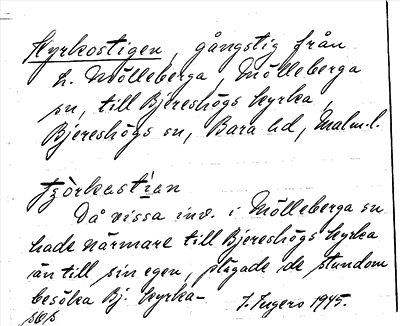 Kyrkostigen, gångstig från
L. Mölleberga, Mölleberga
sn, till Bjereshögs kyrka,
Bjereshögs sn, Bara hd, Malm.l.
Då vissa inv. i Mölleberga sn
hade närmare till Bjereshögs kyrka
än till sin egen, plägade de stundom
besöka Bj. kyrka-
J. Ingers 1945.